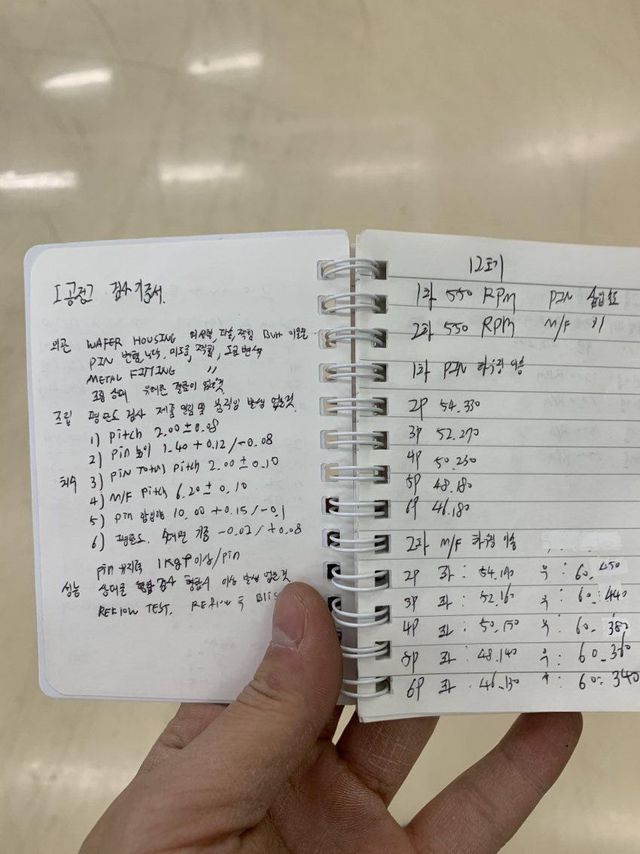 [공정] 검사기준서.
외관 WAFER HOUSING 미사출, 파손, 찍힘 Burr 이물
PIN 변형, 미도금, 찍힘, 도금변색
METAL FITTING 〃
조립 상태
조립 평탄도 검사 제품 및 발생 없을것
1) Pitch 2.00 ± 0.05
2) Pin 높이 1.40 + 0.12 / -0.08
치수 3) PIN Total Pitch 2.00 ± 0.10
4) M/F Pitch 6.20 ± 0.10
5) Pin 삽입량 10.00 + 0.15 / -0.1
6) 평탄도. 기준 -0.02 / +0.08
Pin 유지력 1 Kgf 이상/pin
성능 검사 이상 발생 없을것
REFLOW TEST. Reflow 후
12호기
1차 550 RPM PIN 삽입
2차 550 RPM M/F 〃
1차 PIN 하우징 이송
2P 54.330
3P 52.290
4P 50.230
5P 48.180
6P 46.180
2차 M/F 하우징 이송
2P 좌 : 54.190 우 : 60.450
3P 좌 : 52.160 우 : 60.440
4P 좌 : 50.150 우 : 60.380
5P 좌 : 48.140 우 : 60.360
6P 좌 : 46.130 우 : 60.340